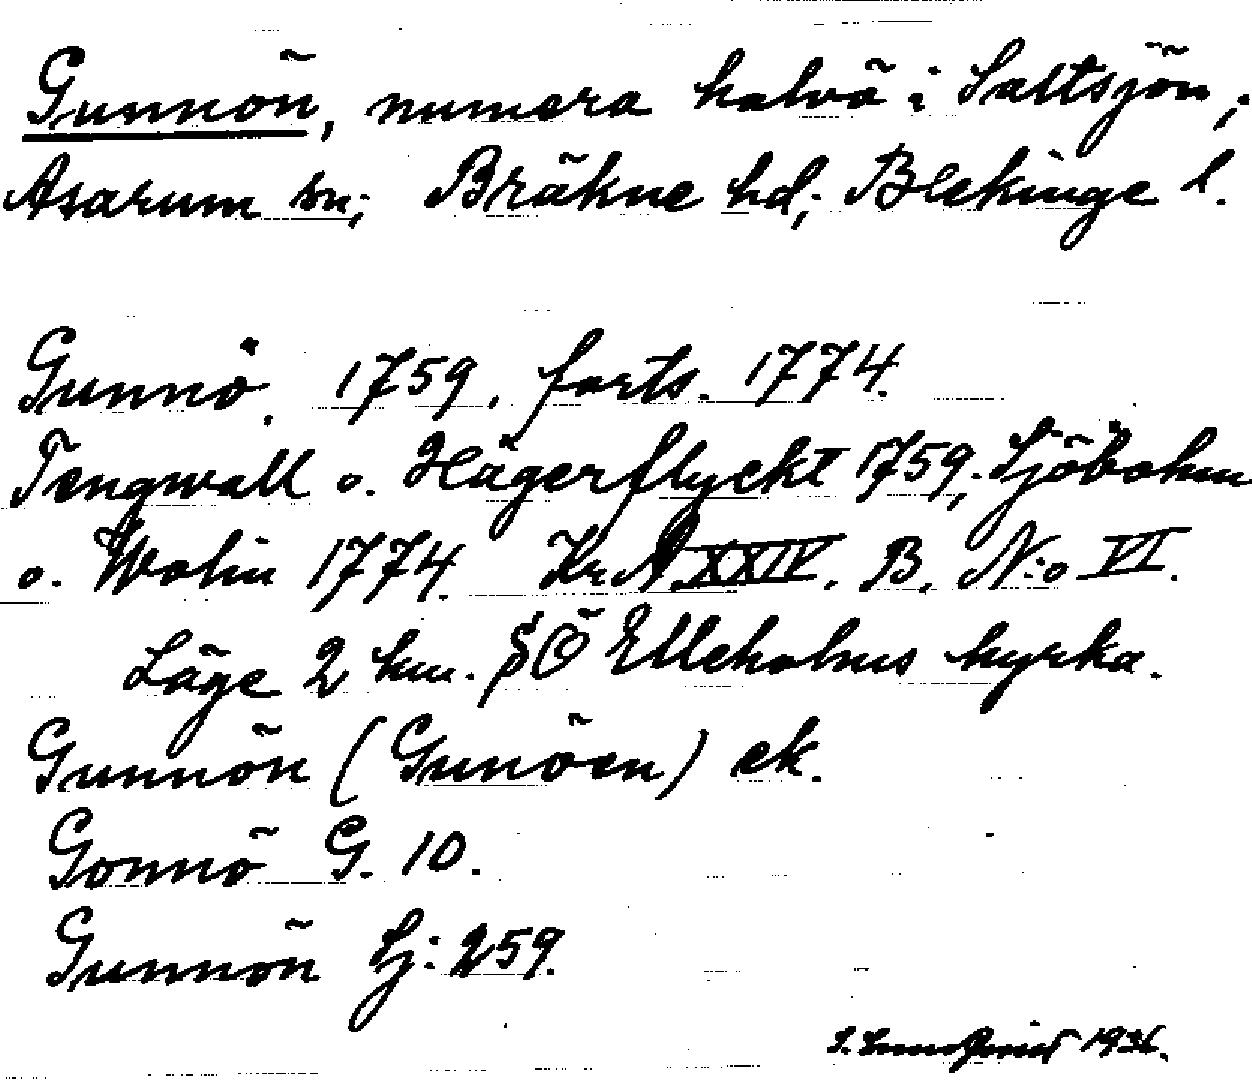 Gunnön, numera halvö i Saltsjön,
Asarum sn; Bräkne hd; Blekinge l.
Gunnö. 1759, forts. 1774.
Tengwall o. Hägerflyckt 1759; Sjöbohm
o. Wolin 1774. Kr. A XXIV. B. N:o VI.
Läge 2 km. SÖ Elleholms kyrka.
Gunnön (Gunöen) ek.
Gonnö G. 10.
Gunnön Sj: 259.
1936.